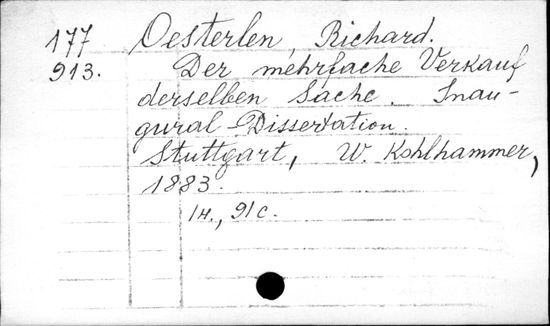 177 Oesterlen, Richard.
913. Der mehrfache Verkauf
derselben Sache. Inau-
gural-Dissertation.
Stuttgart, W. Kohlhammer,
1883.
14., 91 c.